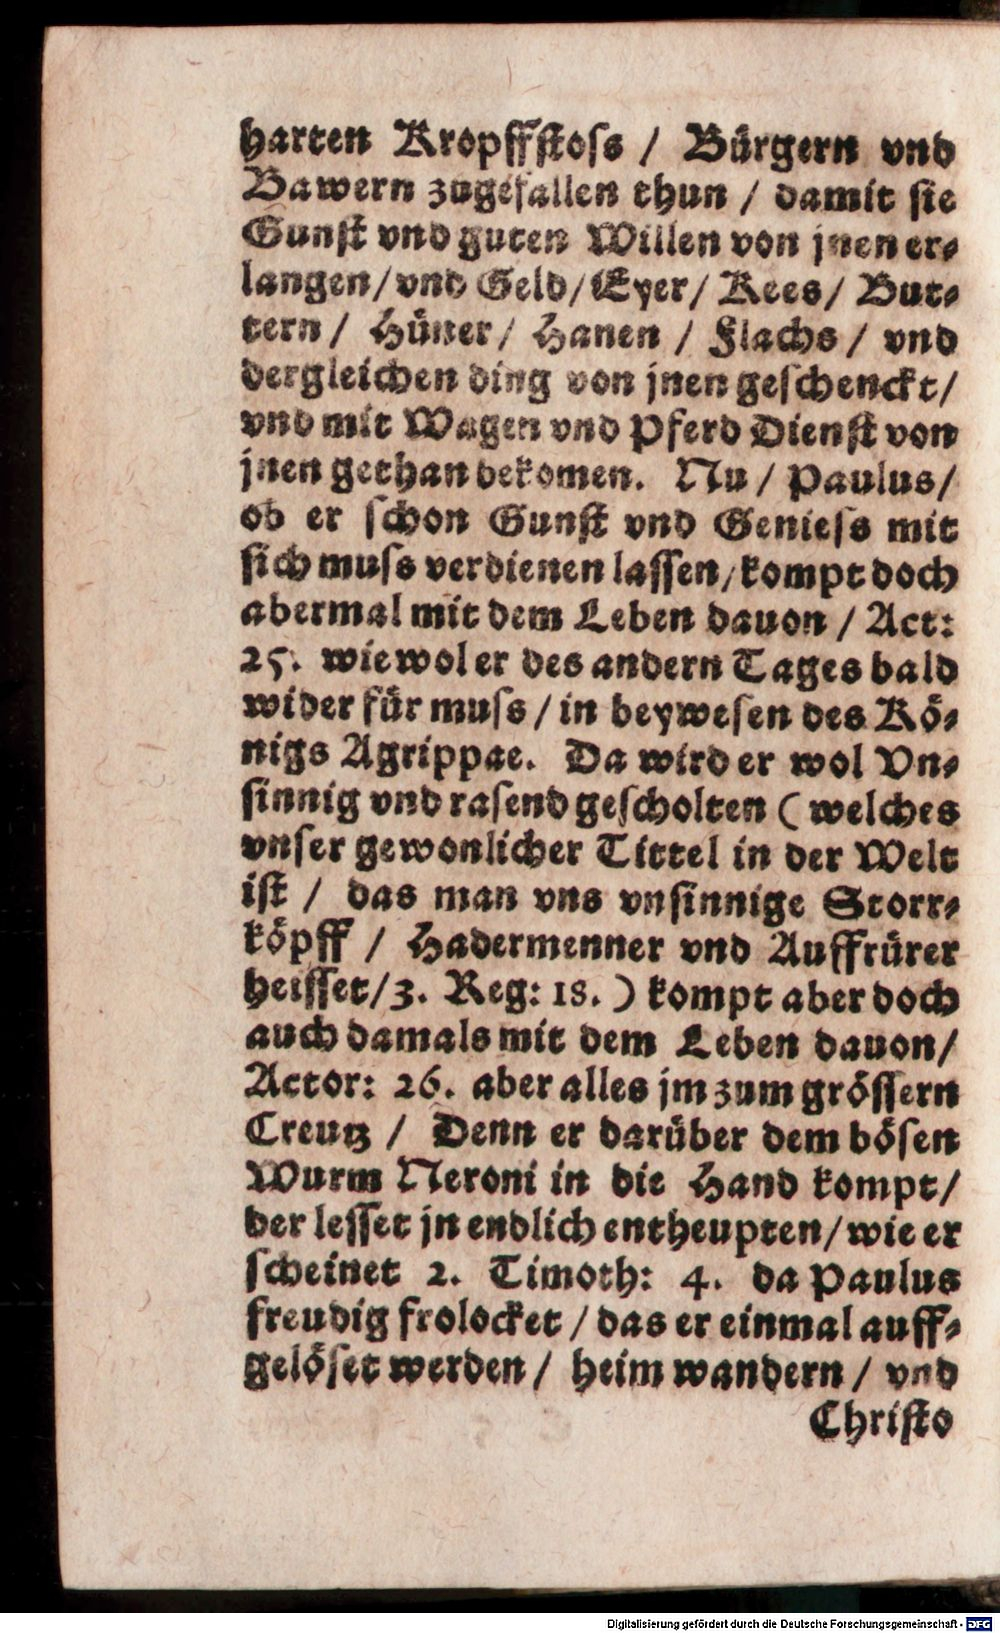 harten Kropffſtoſs / Bürgern vnd
Bawern zugefallen thun / damit ſie
Gunſt vnd guten Willen von jnen er⸗
langen/vnd Geld/Eyer/ Kees/ But⸗
tern / Hüner/ Hanen / Flachs / vnd
dergleichen ding von jnen geſchenckt/
vnd mit Wagen vnd Pferd Dienſt von
jnen gethan bekomen. Nu / Paulus/
ob er ſchon Gunſt vnd Genieſs mit
ſich muſs verdienen laſſen/kompt doch
abermal mit dem Leben dauon / Act:
25. wiewol er des andern Tages bald
wider für muſs / in beyweſen des Kö⸗
nigs Agrippae. Da wird er wol Vn⸗
ſinnig vnd raſend geſcholten ( welches
vnſer gewonlicher Tittel in der Welt
iſt / das man vns vnſinnige Storr⸗
köpff / Hadermenner vnd Auffrürer
heiſſet/3. Reg: 18. ) kompt aber doch
auch damals mit dem Leben dauon/
Actor: 26. aber alles jm zum gröſſern
Creutz / Denn er darüber dem böſen
Wurm Neroni in die Hand kompt/
der leſſet jn endlich entheupten/wie er
ſcheinet 2. Timoth: 4. da Paulus
freudig frolocket / das er einmal auff⸗
gelöſet werden / heim wandern / vnd
Chriſto
Digitalisierung gefördert durch die Deutsche Forschungsgemeinschaft - DFG